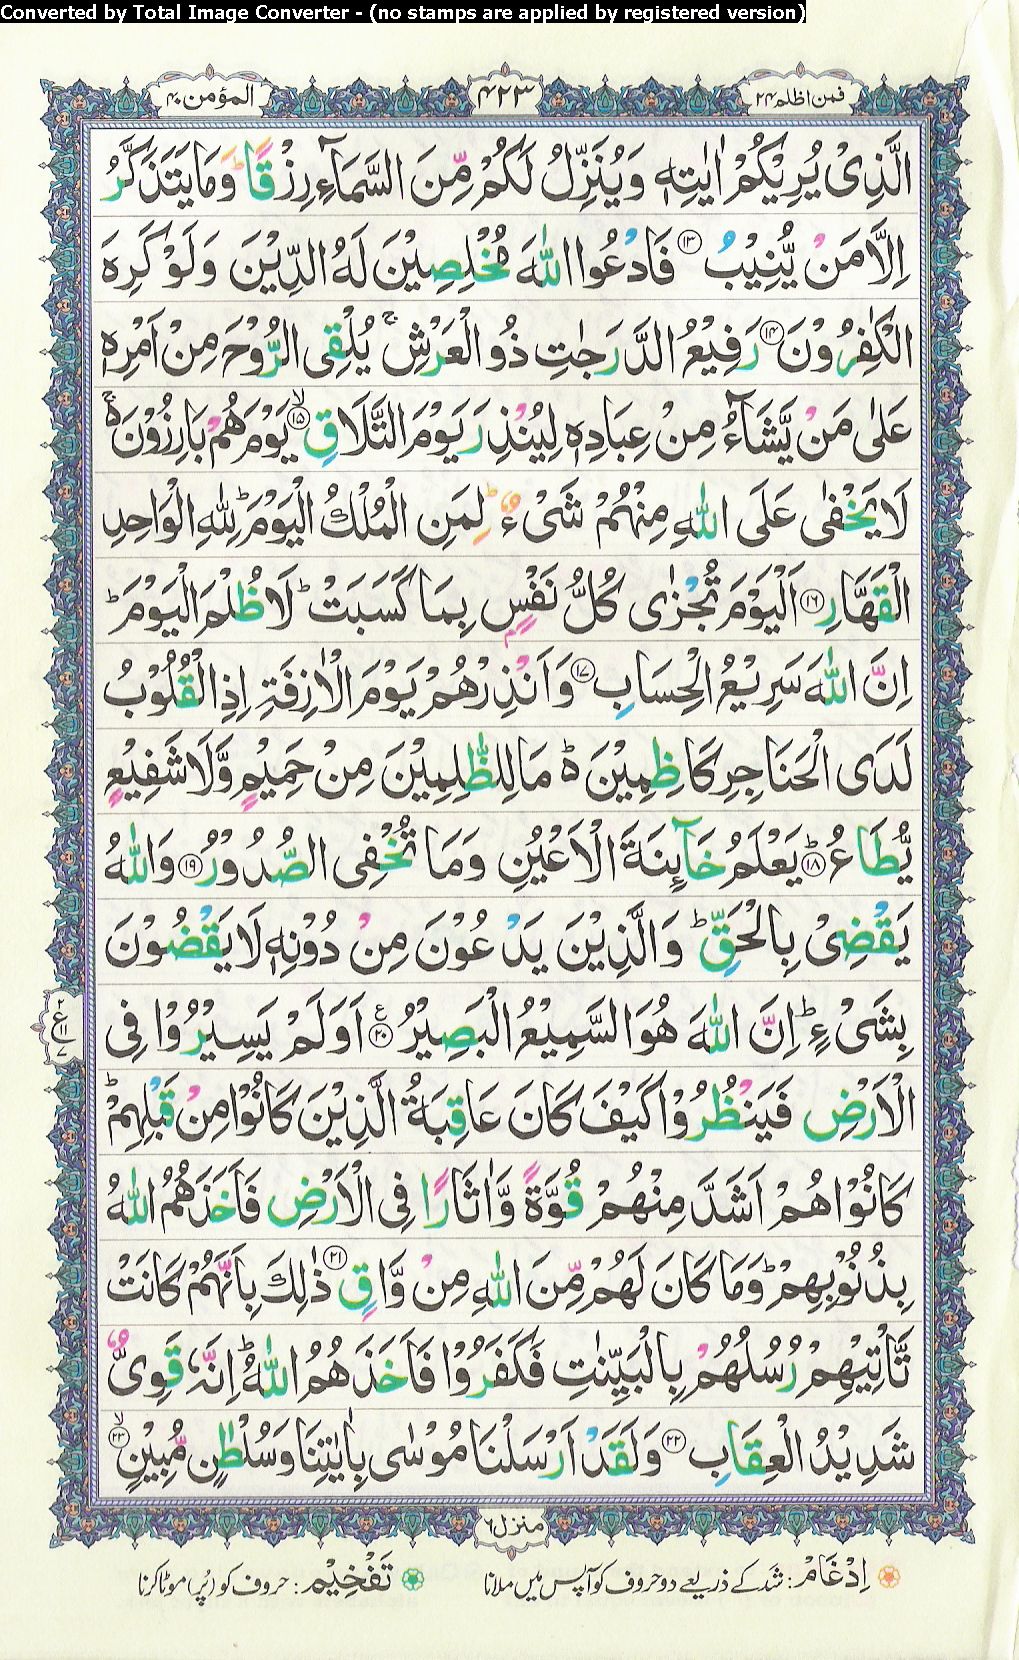 Converted by Total Image Converter - (no stamps are applied by registered version)
فمن اظلم ۲۴
۴۲۳
المؤمن ۴۰
الَّذِىْ يُرِيْكُمْ اٰيٰتِهٖ وَيُنَزِّلُ لَكُمْ مِّنَ السَّمَآءِ رِزْقًا ؕ وَمَا يَتَذَكَّرُ
اِلَّا مَنْ يُّنِيْبُ ۱۳ فَادْعُوا اللّٰهَ مُخْلِصِيْنَ لَهُ الدِّيْنَ وَلَوْ كَرِهَ
الْكٰفِرُوْنَ ۱۴ رَفِيْعُ الدَّرَجٰتِ ذُو الْعَرْشِ ۚ يُلْقِى الرُّوْحَ مِنْ اَمْرِهٖ
عَلٰى مَنْ يَّشَآءُ مِنْ عِبَادِهٖ لِيُنْذِرَ يَوْمَ التَّلَاقِ ۙ ۱۵ يَوْمَ هُمْ بَارِزُوْنَ ۬ۚ
لَا يَخْفٰى عَلَى اللّٰهِ مِنْهُمْ شَىْءٌ ؕ لِمَنِ الْمُلْكُ الْيَوْمَ ؕ لِلّٰهِ الْوَاحِدِ
الْقَهَّارِ ۱۶ اَلْيَوْمَ تُجْزٰى كُلُّ نَفْسٍ بِمَا كَسَبَتْ ؕ لَا ظُلْمَ الْيَوْمَ ؕ
اِنَّ اللّٰهَ سَرِيْعُ الْحِسَابِ ۱۷ وَاَنْذِرْهُمْ يَوْمَ الْاٰزِفَةِ اِذِ الْقُلُوْبُ
لَدَى الْحَنَاجِرِ كَاظِمِيْنَ ۬ؕ مَا لِلظّٰلِمِيْنَ مِنْ حَمِيْمٍ وَّلَا شَفِيْعٍ
يُّطَاعُ ؕ ۱۸ يَعْلَمُ خَآئِنَةَ الْاَعْيُنِ وَمَا تُخْفِى الصُّدُوْرُ ۱۹ وَاللّٰهُ
يَقْضِىْ بِالْحَقِّ ؕ وَالَّذِيْنَ يَدْعُوْنَ مِنْ دُوْنِهٖ لَا يَقْضُوْنَ
بِشَىْءٍ ؕ اِنَّ اللّٰهَ هُوَ السَّمِيْعُ الْبَصِيْرُ ۲۰ ع اَوَلَمْ يَسِيْرُوْا فِى
۲
ع ۱۱
۷
الْاَرْضِ فَيَنْظُرُوْا كَيْفَ كَانَ عَاقِبَةُ الَّذِيْنَ كَانُوْا مِنْ قَبْلِهِمْ ؕ
كَانُوْا هُمْ اَشَدَّ مِنْهُمْ قُوَّةً وَّاٰثَارًا فِى الْاَرْضِ فَاَخَذَهُمُ اللّٰهُ
بِذُنُوْبِهِمْ ؕ وَمَا كَانَ لَهُمْ مِّنَ اللّٰهِ مِنْ وَّاقٍ ۲۱ ذٰلِكَ بِاَنَّهُمْ كَانَتْ
تَّاْتِيْهِمْ رُسُلُهُمْ بِالْبَيِّنٰتِ فَكَفَرُوْا فَاَخَذَهُمُ اللّٰهُ ؕ اِنَّهٗ قَوِىٌّ
شَدِيْدُ الْعِقَابِ ۲۲ وَلَقَدْ اَرْسَلْنَا مُوْسٰى بِاٰيٰتِنَا وَسُلْطٰنٍ مُّبِيْنٍ ۙ ۲۳
منزل ۶
اِدْغَامْ: شد کے ذریعے دو حروف کو آپس میں ملانا
تَفْخِيْم: حروف کو (پُر) موٹا کرنا